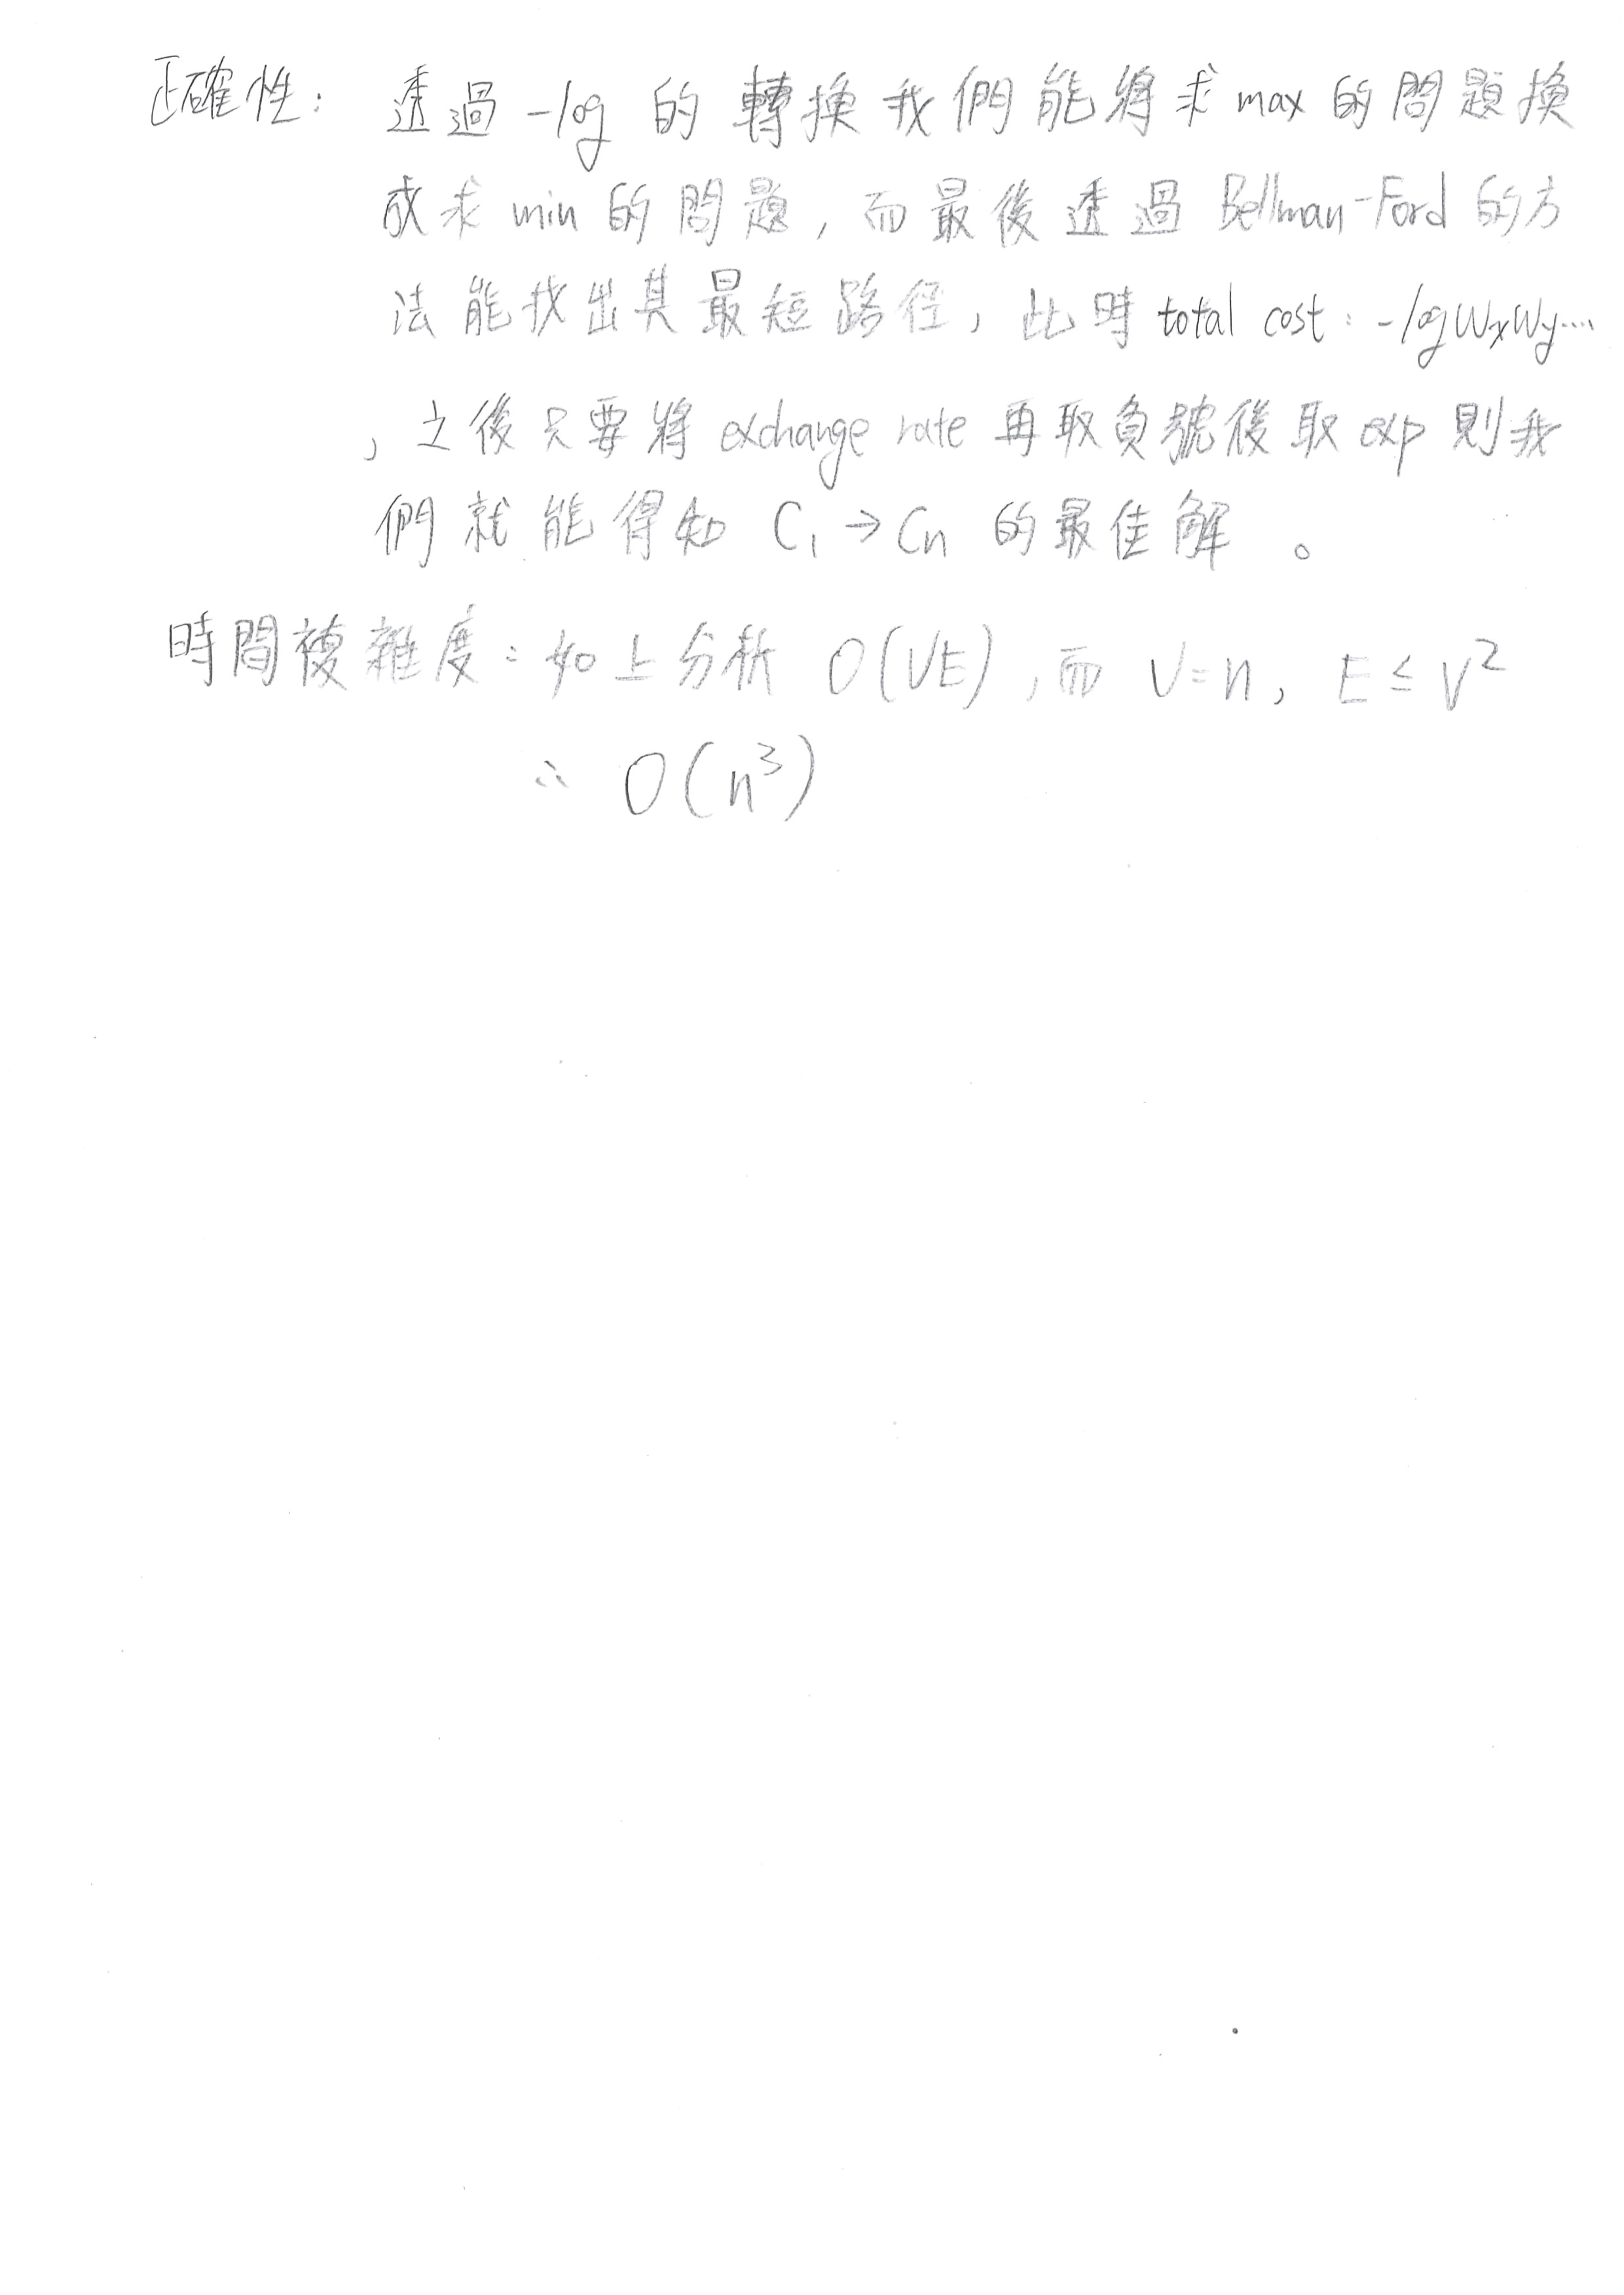 正確性: 透過 -log 的轉換我們能將求 max 的問題換
成求 min 的問題, 而最後透過 Bellman-Ford 的方
法能找出其最短路徑, 此時 total cost: -logWxWy....
, 之後只要將 exchange rate 再取負號後取 exp 則我
們就能得知 C₁→Cn 的最佳解。
時間複雜度: 如上分析 O(VE), 而 V=n, E≤V²
∴ O(n³)